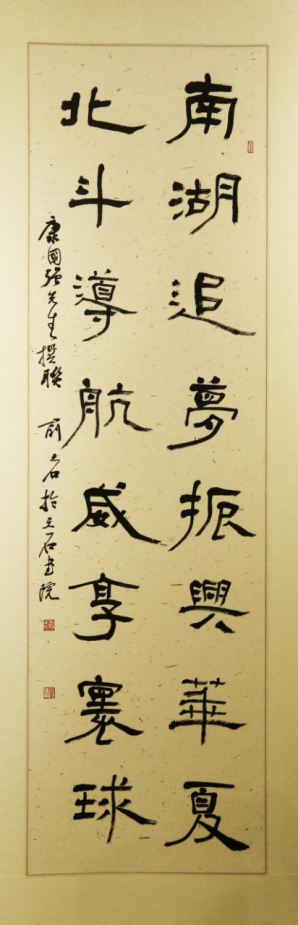 南湖追夢振興華夏
北斗導航威享寰球
康國强先生撰聯
石於立石書院